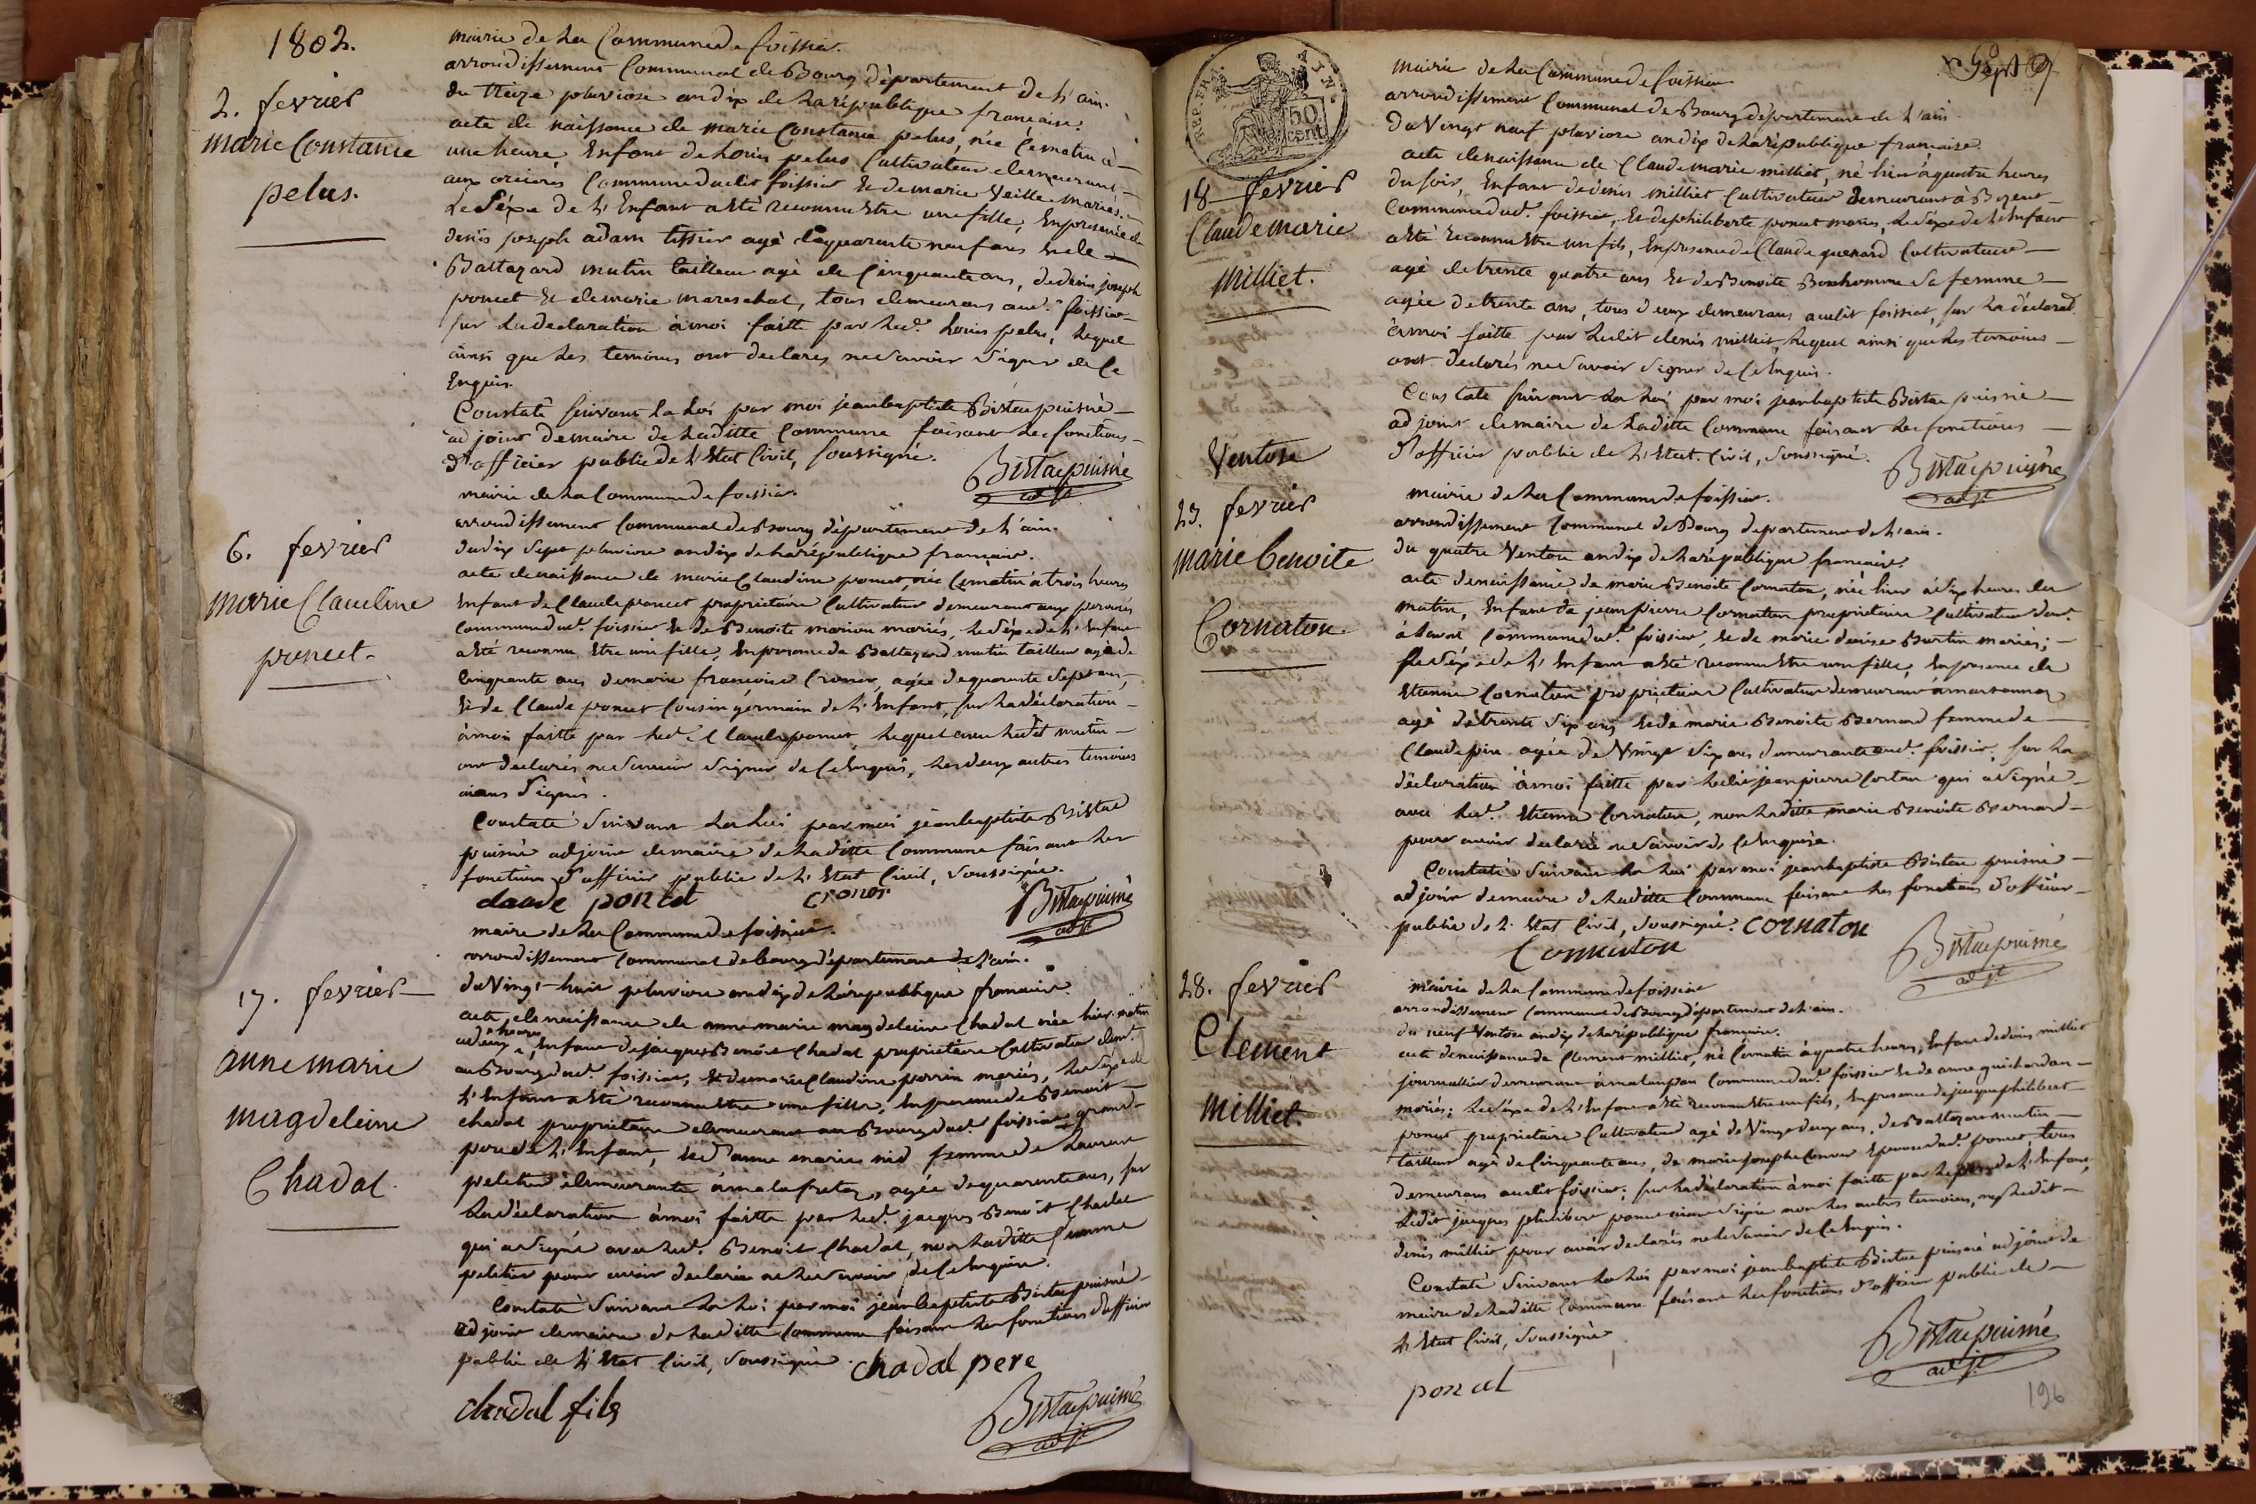 1802.
mairie de La Commune de foissia.
arrondissement Communal de Bourg département de L'ain.
du treize pluviose an dix de La république francaise.
2. fevrier
marie Constance
pelus.
acte de naissance de marie Constance pelus, née Cematin à
une heure, Enfant de Louis pelus Cultivateur demeurant
aux Commune dudit foissiat Et de marie Veille mariés.
Le Séxe de L'Enfant a Eté reconnu Etre une fille, En presence de
denis joseph adam tissier agé de quarante neuf ans Et de
Baltazard mutin tailleur agé de Cinquante ans, de denis joseph
poncet Et de marie mareschal, tous demeurans aud. foissiat
sur La declaration à moi faitte par Led. Louis pelus, Lequel
ainsi que Les temoins ont declarés ne Savoir Signer de Ce
Enquis.
Constaté suivant La Loi par moi jean baptiste Bistac puisné
adjoint de maire de Laditte Commune faisant Les fonctions
d'officier public de L'Etat Civil, soussigné.
Bistac puisné
adjt
mairie de La Commune de foissia.
arrondissement Communal de Bourg département de L'ain.
du dix Sept pluviose an dix de La république francaise.
6. fevrier
marie Claudine
poncet.
acte de naissance de marie Claudine poncet, née Cematin à trois heures
Enfant de Claude poncet proprietaire Cultivateur demeurant aux
Commune dud. foissiat Et de Benoite marion mariés, Le Séxe de L'Enfant
a Eté reconnu Etre une fille, En presence de Baltazard mutin tailleur agé de
Cinquante ans de marie francoise Croner, agée de quarante Sept ans,
Et de Claude poncet Cousin germain de L'Enfant, sur La déclaration
à moi faitte par Led. Claude poncet, Lequel avec Ledit mutin
ont declarés ne Savoir Signer de Ce Enquis, Les deux autres temoins
aians Signés.
Constaté Suivant La Loi par moi jean baptiste Bistac
puisné adjoint de maire de Laditte Commune faisant Les
fonctions d'officier public de L'Etat Civil, Soussigné.
claude poncet croner Bistac puisné
adjt
mairie de La Commune de foissiat.
arrondissement Communal de bourg département de L'ain.
du Vingt-huit pluviose an dix de La république francaise.
17. fevrier
anne marie
magdeleine
Chadal.
acte de naissance de anne marie magdeleine Chadal née hier matin
à deux heures, Enfant de jacques Benoit Chadal proprietaire Cultivateur dem.
au Bourg dud. foissiat, Et de marie Claudine perrin mariés, Le Séxe de
L'Enfant a Eté reconnu Etre une fille, En presence de Benoit
Chadal proprietaire demeurant au Bourg dud. foissiat grand
pere de L'Enfant, Et d'anne marie nid femme de Laurent
peletier demeurante à malafretaz, agée de quarante ans, sur
La déclaration à moi faitte par Led. jacques Benoit Chadal
qui a Signé avec Led. Benoit Chadal, non Laditte femme
peletier pour avoir declarée ne Le Savoir de Ce Enquise.
Constaté Suivant La Loi par moi jean baptiste Bistac puisné
adjoint de maire de Laditte Commune faisant Les fonctions d'officier
public de L'Etat Civil, Soussigné. Chadal pere
chadal fils
Bistac puisné
adjt
REP. FRA. AIN.
50
cent.
mairie de La Commune de foissia
arrondissement Communal de Bourg département de L'ain.
du Vingt neuf pluviose an dix de La république francaise.
18 fevrier
Claude marie
milliet.
acte de naissance de Claude marie milliet, né hier à quatre heures
du soir, Enfant de denis milliet Cultivateur demeurant à
Commune dud. foissiat, Et de philiberte poncet mariés, Le Séxe de L'Enfant
a Eté reconnu Etre un fils, En presence de Claude guenard Cultivateur
agé de trente quatre ans Et de Benoite Bonhomme Sa femme
agée de trente ans, tous deux demeurans audit foissiat, sur La déclarad.
à moi faitte par Ledit denis milliet, Lequel ainsi que Les temoins
ont declarés ne Savoir Signer de Ce Enquis.
Constaté suivant La Loi par moi jean baptiste Bistac puisné
adjoint de maire de Laditte Commune faisant Les fonctions
d'officier public de L'Etat Civil, Soussigné.
Bistac puisné
adjt
Ventose
mairie de La Commune de foissiat.
arrondissement Communal de Bourg departement de L'ain.
du quatre Ventose an dix de La république francaise.
23. fevrier
marie benoite
Cornaton
acte de naissance de marie Benoite Cornaton, née hier à dix heures du
matin, Enfant de jean pierre Cornaton proprietaire Cultivateur dem.
Commune dud. foissiat, Et de marie denise Burtin mariés;
Le Séxe de L'Enfant a Eté reconnu Etre une fille, En presence de
Etienne Cornaton proprietaire Cultivateur demeurant à marsonnas
agé de trente Six ans Et de marie Benoite Bernard femme de
Claude agée de Vingt Six ans demeurante aud. foissiat, sur La
déclaration à moi faitte par Ledit jean pierre Cortau qui a Signé
avec Led. Etienne Cornaton, non Laditte marie Benoite Bernard
pour avoir declarée ne Savoir de Ce Enquise.
Constaté Suivant La Loi par moi jean baptiste Bistac puisné
adjoint de maire de Laditte Commune faisant Les fonctions d'officier
public de L'Etat Civil, Soussigné. Cornaton
Cornaton
Bistac puisné
adjt
mairie de La Commune de foissiat
arrondissement Communal de Bourg département de L'ain.
du neuf Ventose an dix de La république francaise.
28. fevrier
Clement
milliet.
acte de naissance de Clement milliet, né Cematin à quatre heures, Enfant de denis milliet
journallier demeurant à Commune dud. foissiat Et de anne guichardan
mariés; Le Séxe de L'Enfant a Eté reconnu Etre un fils, En presence de jacques philibert
poncet proprietaire Cultivateur agé de Vingt deux ans, de Baltazard mutin
tailleur agé de Cinquante ans, de marie josephe Epouse dud. poncet, tous
demeurans audit foissiat; sur La déclaration à moi faitte par Le père de L'Enfant,
Ledit jacques philibert poncet aiant Signé non Les autres temoins, ny Ledit
denis milliet pour avoir declarés ne Le Savoir de Ce Enquis.
Constaté Suivant La Loi par moi jean baptiste Bistac puisné adjoint de
maire de Laditte Commune faisant Les fonctions d'officier public de
L'Etat Civil, Soussigné
poncet
Bistac puisné
adjt
196